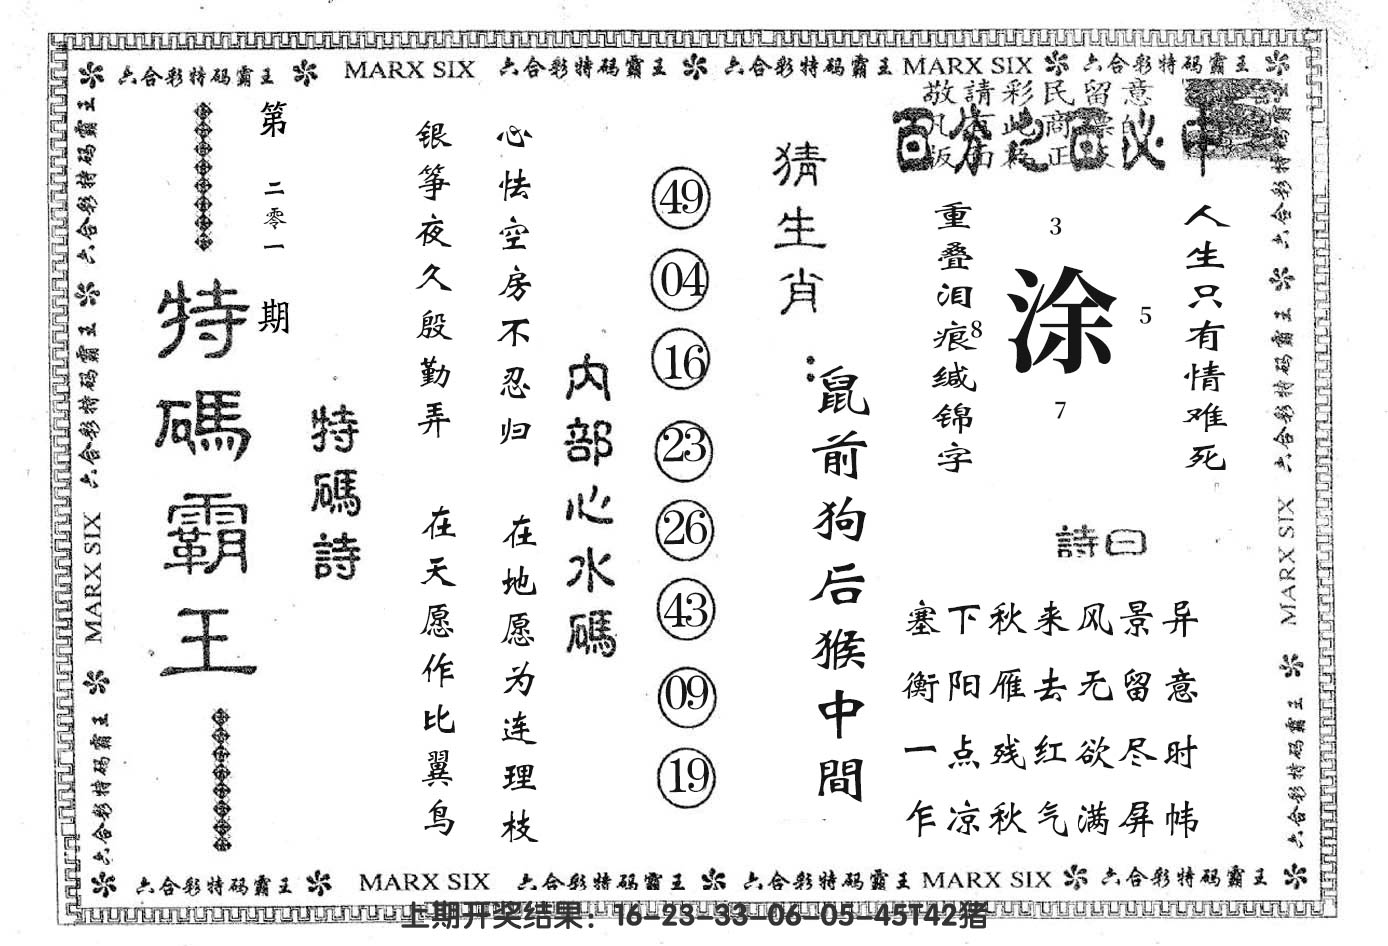 六合彩特码霸王 MARX SIX 六合彩特码霸王 六合彩特码霸王 MARX SIX 六合彩特码霸王
敬請彩民留意
百分之百必中
人生只有情难死
3
涂
5
8
7
重叠泪痕缄锦字
詩曰
塞下秋来风景异
衡阳雁去无留意
一点残红欲尽时
乍凉秋气满屏帏
猜生肖：
鼠前狗后猴中間
49
04
16
23
26
43
09
19
内部心水碼
心怯空房不忍归 在地愿为连理枝
银筝夜久殷勤弄 在天愿作比翼鸟
特碼詩
第二零一期
特碼霸王
六合彩特码霸王 六合彩特码霸王 MARX SIX 六合彩特码霸王
六合彩特码霸王 六合彩特码霸王 MARX SIX 六合彩特码霸王
六合彩特码霸王 MARX SIX 六合彩特码霸王 六合彩特码霸王 MARX SIX 六合彩特码霸王
上期开奖结果：16-23-33-06-05-45T42猪